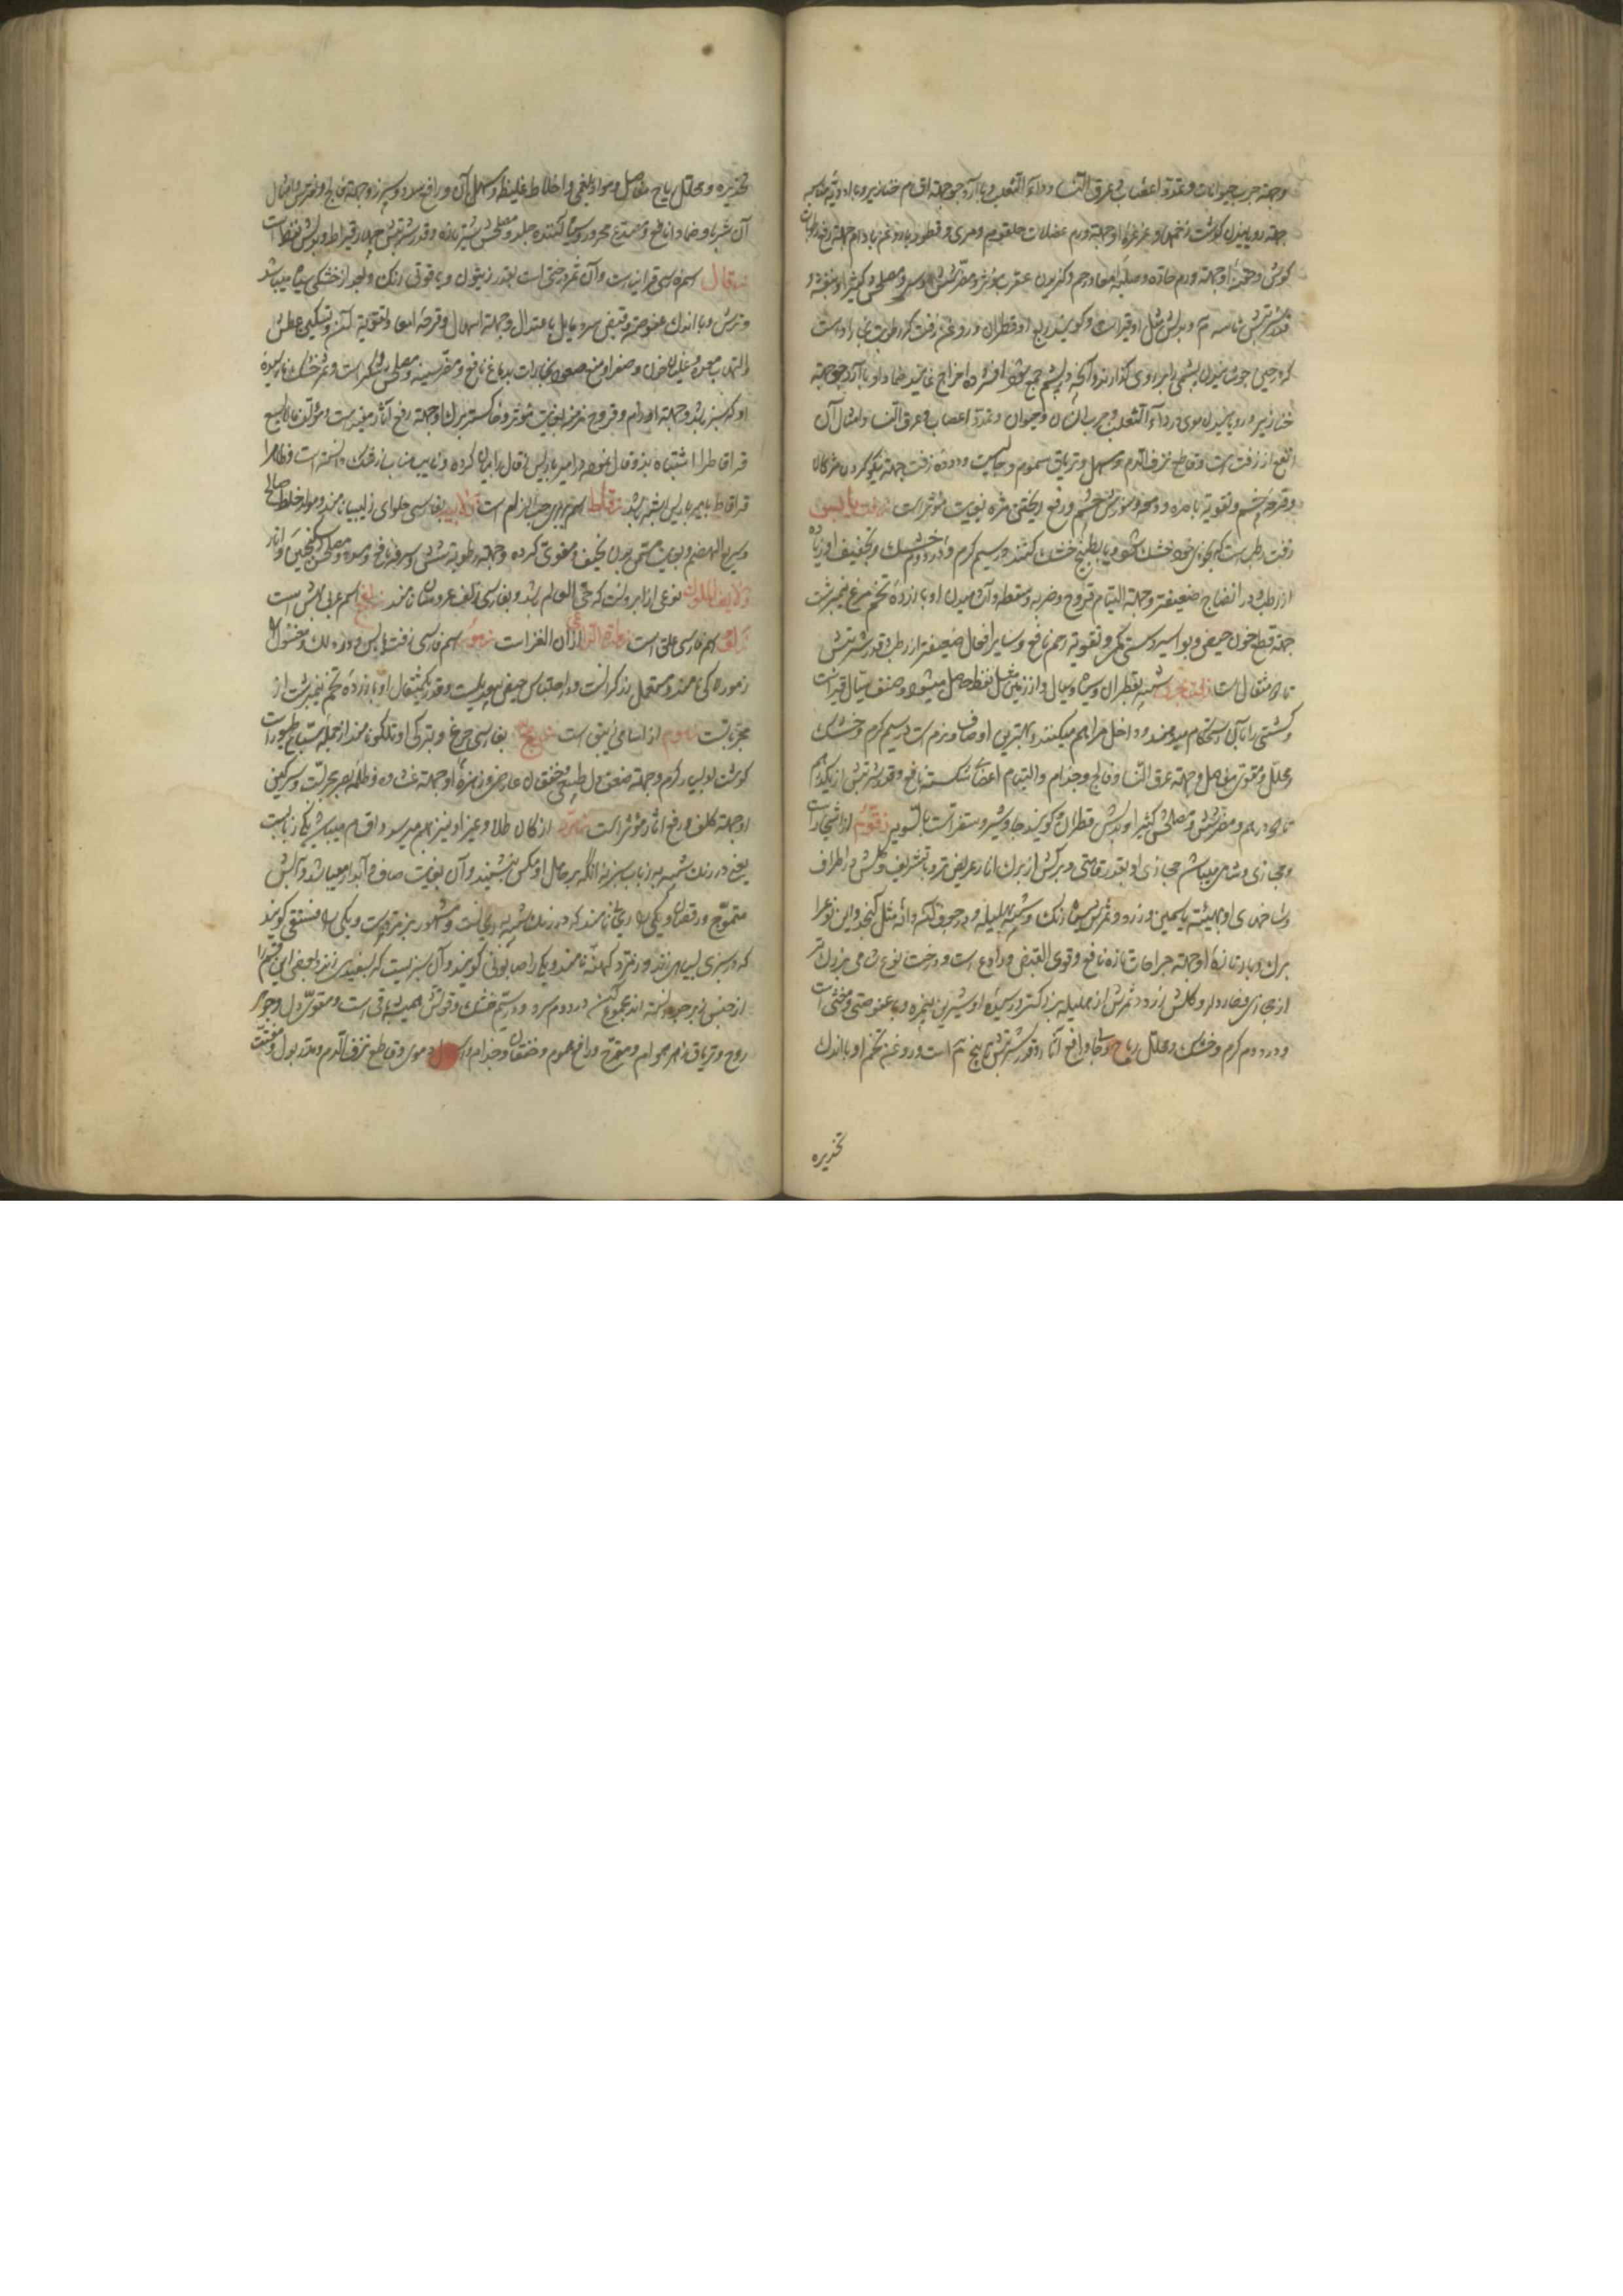 وجهته جرب حیوانات و تمدد اعصاب و عرق النسا و داء الثعلب و با آرد جو جهته اقسام خنازیر و با ادویه مناسبه
جهته رویانیدن گوشت زخمها و غرغرهٔ او جهته ورم عضلات حلقوم و مری و قطور با روغن بادام جهته رفع رطوبات
گوش و حقنهٔ او جهته ورم حاره و صلبه امعا و رحم و گزیدن عقرب مؤثر و مضر شش و سر و مصلحش کثیرا و بنفشه و
قدر شربتش تا سه م و بدلش مثل او قیر است و گویند ربع او قطران و روغن زفت که رطوبت بخار اوست
که در حین جوشانیدن پشمی را بر او می گذارند و آنچه در پشم جمع شود افشرده اخراج نمایند ضماد او با آرد جو جهته
خنازیر و رویانیدن موی در داء الثعلب و جرب انسان و حیوان و تمدد اعصاب و عرق النسا و امثال آن
انفع از زفت است و قاطع نزف الدم و مسهل و تریاق سموم و جالیست و دوده زفت جهته نیکو کردن مژگان
و قرحه چشم و تقویة باصره و دمعه و سوزش چشم و رفع ریختن مژه بغایت مؤثر است زفت یابس
زفت رطب است که بخودی خود خشک شود و یا بطبخ خشک کنند در سیم گرم و در دوم خشک و تجفیف او زیاده
از رطب و در انضاج ضعیفتر و جهته التیام قروح و ضربه و سقطه و آشامیدن او با زردهٔ تخم مرغ نیمبرشت
جهته قطع خون حیض و بواسیر و سستی کمر و تقویة رحم نافع و سایر افعال ضعیفتر از رطب و قدر شربتش
تا دو مثقال است زفت بحری شبیه بقطران و سیاه و سیال و از زمین مثل نفط حاصل میشود و صنف سیال قیر است
و کشتی را با آن استحکام میدهند و داخل مراهم میکنند و بهترین او صاف و نرم است در سیم گرم و خشک
و محلل و مقوی مفاصل و جهته عرق النسا و فالج و جذام و التیام اعضای شکسته نافع و قدر شربتش از یکدرهم
تا دو درهم و مضر شش و مصلحش کثیرا و بدلش قطران و گویند جاوشیر و سقز است بالسویه زقوم از اشجار است
و حجازی و شامی میباشد حجازی او بقدر قامتی و برگش از برگ انار عریض تر و با تشریف و گلش در اطراف
و شاخهای او بهیئته یاسمین و زرد و ثمرش سیاه رنگ و شبیه بهلیله و در جوف آن دانه مثل کنجد و این نوع را
برگ و بار تازهٔ او جهته جراحات تازه نافع و قوی القبض و رادع است و درخت نوع شامی بزرگ تر
از حجازی و خاردار و گلش زرد و ثمرش از هلیله بزرگتر و رسیدهٔ او شیرین بیمزه و با عفوصتی و مغثی است
و در دوم گرم و خشک و محلل ریاح و جالی و رافع آثار و قدر شربتش تا پنج م است و روغن تخم او با اندک
تخدیره
تخدیره و محلل ریاح مفاصل و مواد بلغمی و اخلاط غلیظه و مسهل آن و رافع سدد و سپرز و جهته فالج و نقرس و امثال
آن شربا و ضمادا نافع و مصدع محرور و سیاه کننده جلد و مصلحش شیر تازه و قدر شربتش چهار قیراط و بدلش نفط است
زقال اسم فارسی قرانیاست و آن ثمر درختی است بقدر زیتون و یاقوتی رنگ و بعد از خشکی سیاه میباشد
و ترش و با اندک عفوصته و قبض سرد و مایل باعتدال و جهته اسهال و قرحهٔ امعا و تقویة آن و تسکین عطش
و التهاب معده و غلیان خون و صفرا و منع صعود بخارات بدماغ نافع و مضر سینه و مصلحش شکر است و ثمر خشک نارسیدهٔ
او که سبز باشد و جهته اورام و قروح مزمنه بغایت مؤثر و خاکستر برگ او جهته رفع آثار مفید است و مؤلف مالایسع
قراقاط را اشتباه بزقال نموده و امیر باریس را زقال بیان کرده و نایب مناب زرشک دانسته است و ظاهرا
قراقاط با امبر باریس اشتبه باشد زقاط اسم بربری حب الزلم است زلابیه بفارسی حلوای زلیبیا نامند و مولد خلط صالح
و سریع الهضم و بغایت مسمن بدن نحیف و مقوی گرده و جهته رطوبة شش و سرفه نافع و مسدد و مصلحش سکنجبین و انار
زلایف الملوک نوعی از ابرونست که حی العالم باشد و بفارسی زلف عروسان نامند زلنج اسم عربی آهش است
زلف اسم فارسی علق است زمارة الراعی اذان العنز است زموه اسم فارسی زفت یابس و دوده الک و مغسول
زموراکی نامند و مستعمل زرگرانست و در احتباس حیض بیعدیلست و قدر یکمثقال او با زردهٔ تخم نیمبرشت از
مجرباتست زمزم از اسامی زیبق است زمج بفارسی جرغ و بترکی اوتلکون نامند از جمله سباع طیور است
گوشت او بسیار گرم و جهته ضعف دل و خفقان عارض و زهرهٔ او جهته غشاوه و ظلمة بصر مجربست و سرگین
او جهته کلف و رفع آثار مؤثر است زمرد از کان طلا و غیر او نیز بهم میرسد و اقسام میباشد یکی ذبابیست
یعنی در رنگ شبیه به ذباب سبز نه آنکه بر حامل او مکس ننشیند و آن بغایت صاف و آبدار میباشد و آبش
متموج و رقصان و یکی را ریحانی نامند که در رنگ شبیه به ریحانست و مشهور بزمرد است و یکی را فستقی گویند
که در سبزی بسیار سیر نباشد و زمرد کهنه نامند و یکی را صابونی گویند و آن سبزیست که بسفیدی زند و بعضی این قسم را
از جنس زبرجد دانسته اند مجموع آن در دوم سرد و در سیم خشک و قوتش همیشه باقی است و مقوی دل و جوهر
روح و تریاق زهر هوام و مفرح و رافع هموم و خفقان و جذام و اسهال دموی و قاطع نزف الدم و مدر بول و مفتت